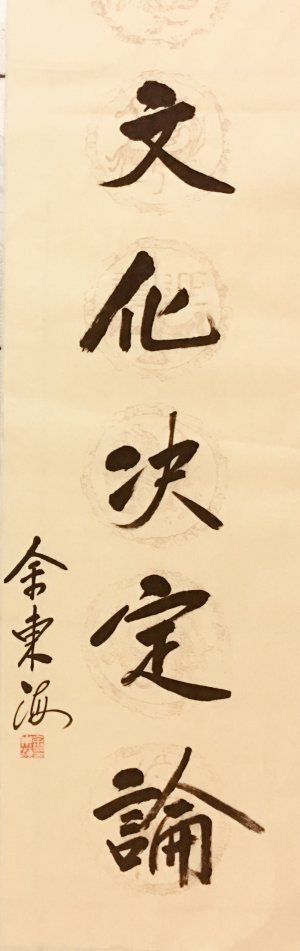 文化决定論
余東海